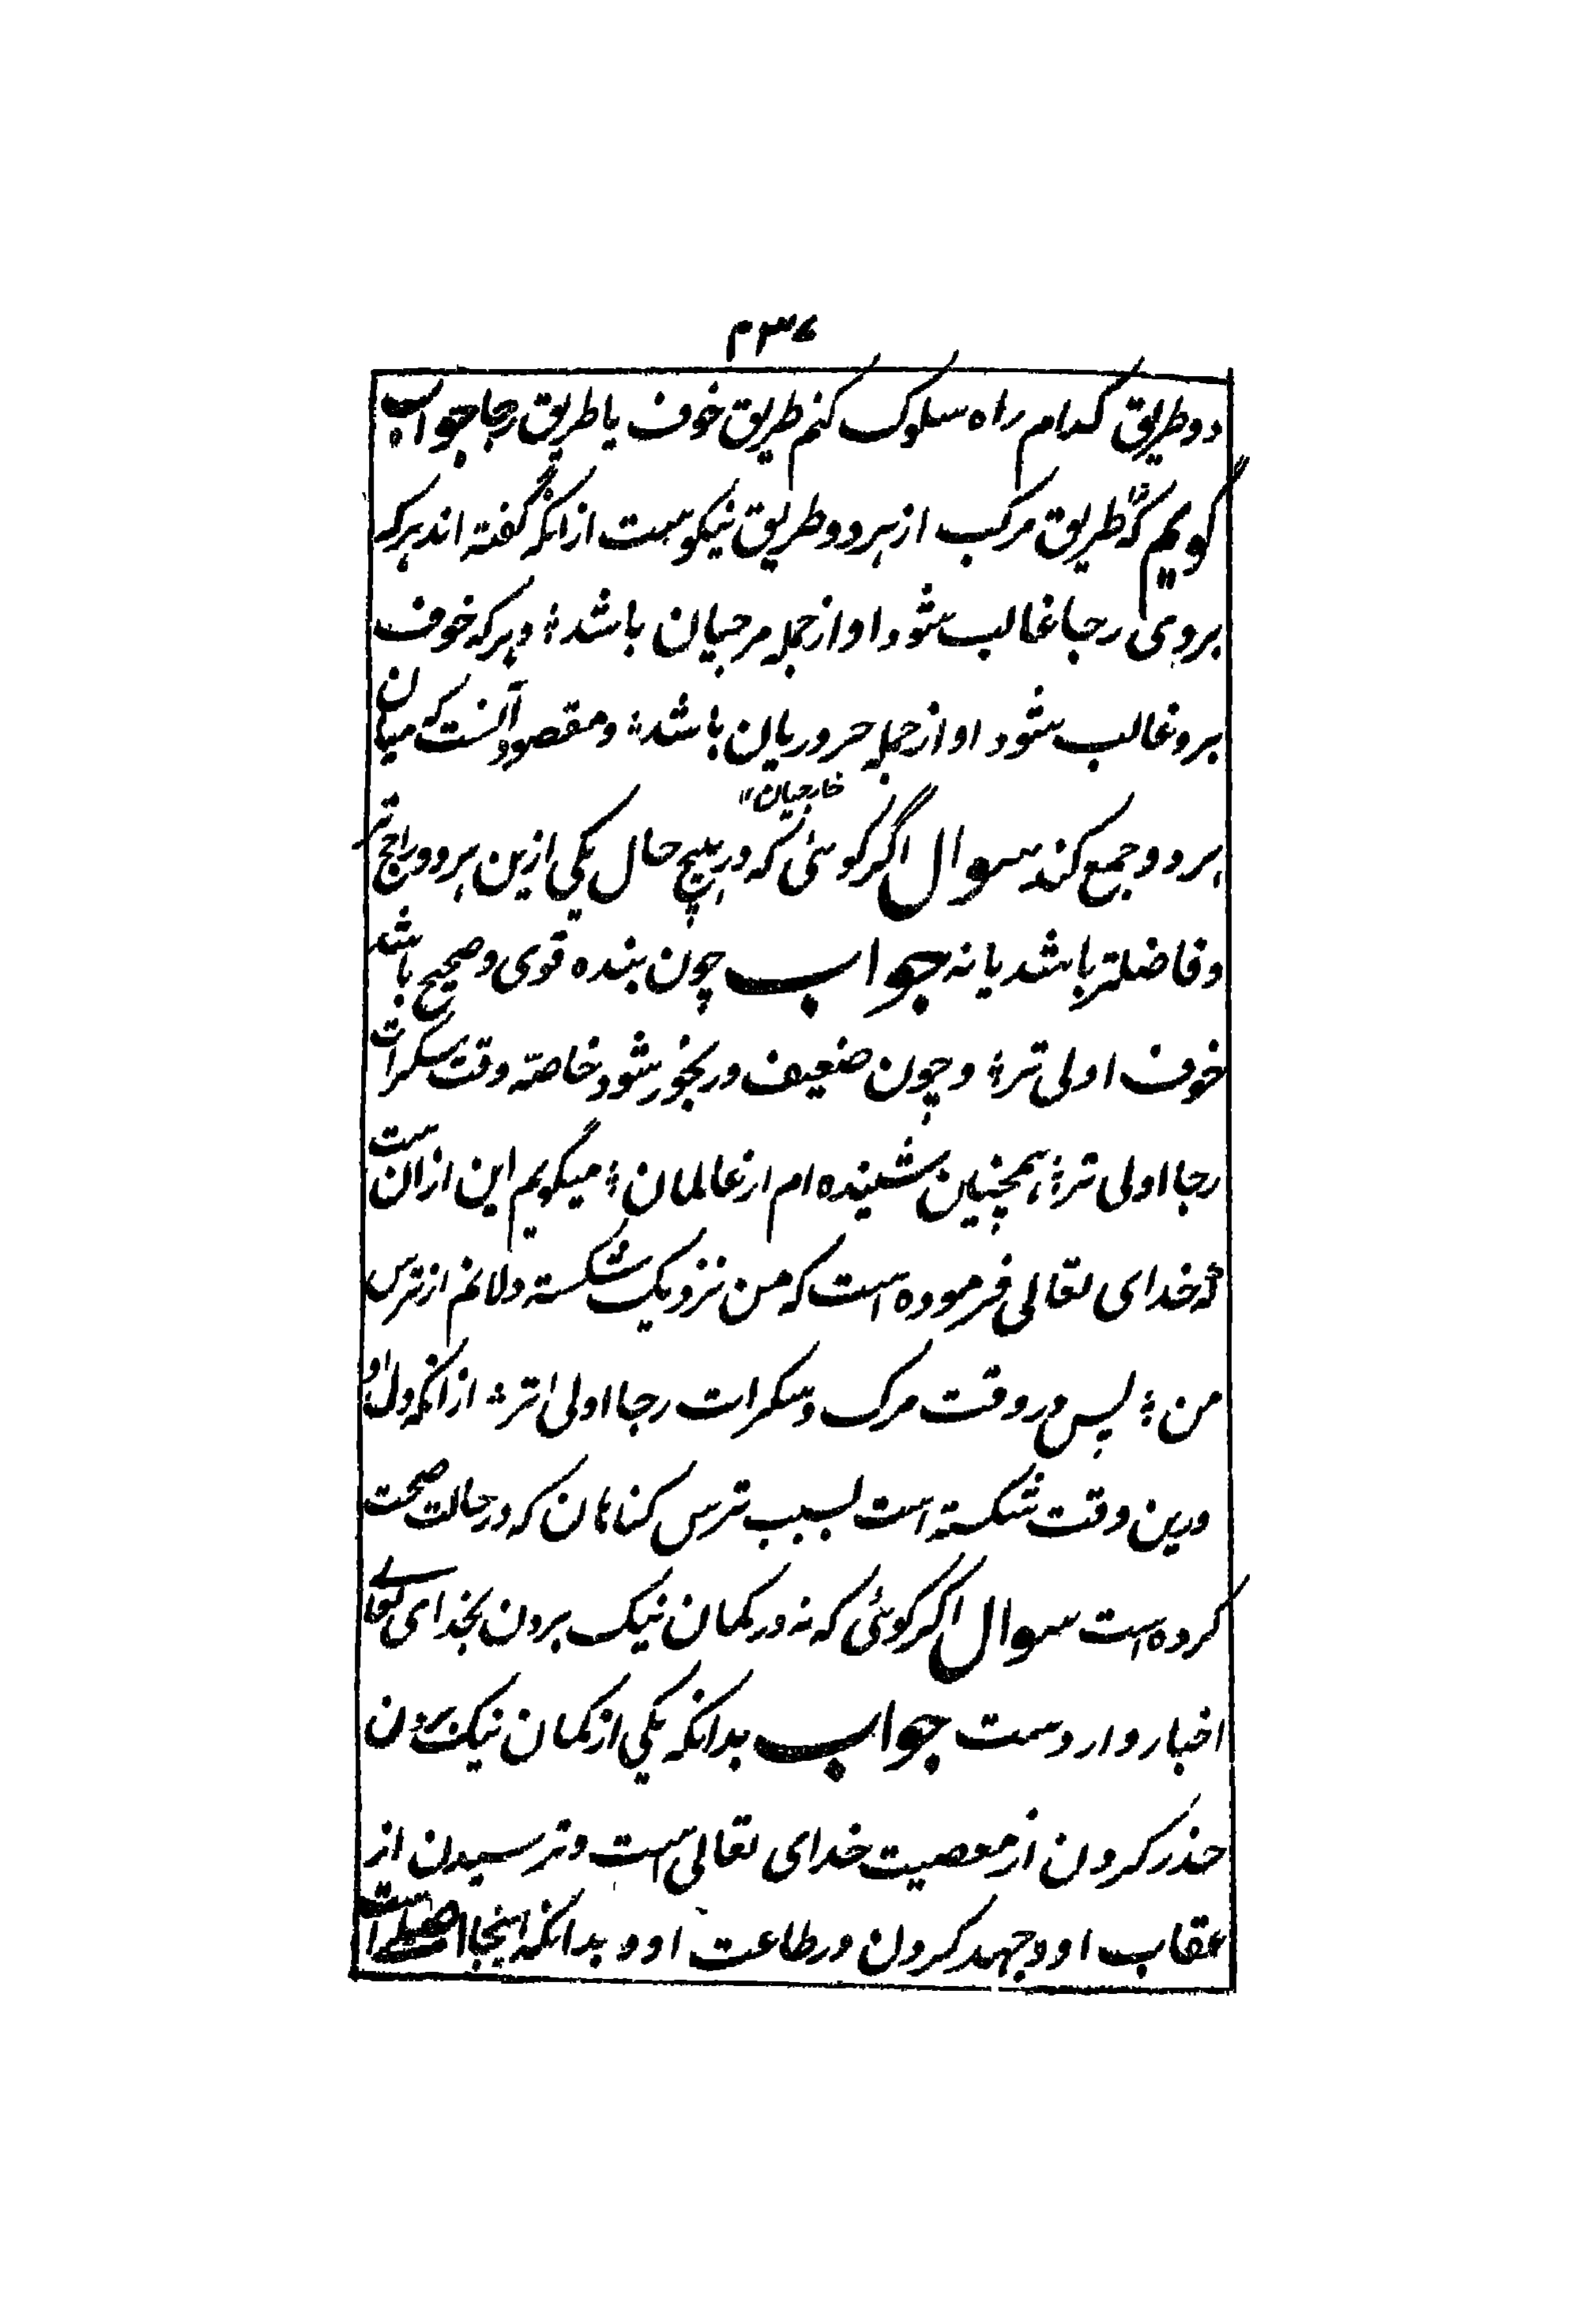 ۲۳۶
دو طریق کدام راه سلوک کنم طریق خوف یا طریق رجا جواب
گویم که طریق مرکب از هر دو طریق نیکوست از انکه گفته اند هر که
بروی رجا غالب شود او از جمله مرجیان باشد؛ و هر که خوف
برو غالب شود او از جمله حروریان باشد؛ و مقصود آنست که میان
خارجیان ۱۲
هر دو جمع کند سوال اگر گوئی که در هیچ حال یکی ازین هر دو راجح تر
و فاضلتر باشد یا نه جواب چون بنده قوی و صحیح باشد
خوف اولی تر؛ و چون ضعیف و رنجور شود خاصّه وقت سکرات
رجا اولی تر؛ همچنین شنیده ام از عالمان؛ میگویم این ازان ست
که خدای تعالی فرموده است که من نزدیک شکسته دلانم از ترس
من؛ پس در وقت مرک و سکرات رجا اولی تر؛ از انکه دل او
درین وقت شکسته است بسبب ترس کناهان که در حالت صحت
کرده است سوال اکر کوئی که نه در کمان نیک بردن بخدای تعالے
اخبار وارد ست جواب بدانکه یکی از کمان نیک بردن
حذر کردن از معصیت خدای تعالی است و ترسیدن از
عقاب او و جهد کردن در طاعت او و بدانکه اینجا اصلے است